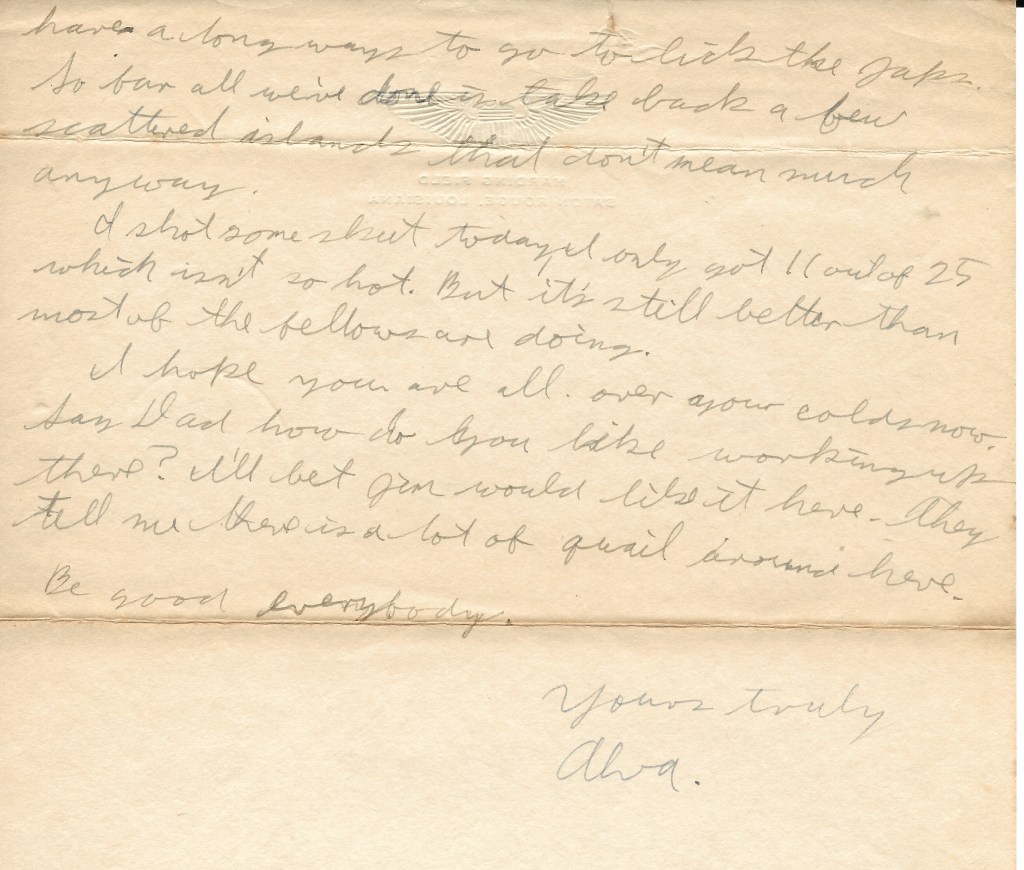 have a long ways to go to lick the Japs.
So far all we've done is take back a few
scattered islands that don't mean much
anyway.
HARDING FIELD
BATON ROUGE, LOUISIANA
I shot some skeet today, I only got 11 out of 25
which isn't so hot. But it's still better than
most of the fellows are doing.
I hope you are all over your colds now.
Say Dad how do you like working up
there? I'll bet Jim would like it here. They
tell me there is a lot of quail around here.
Be good everybody.
Yours truly
Alva.